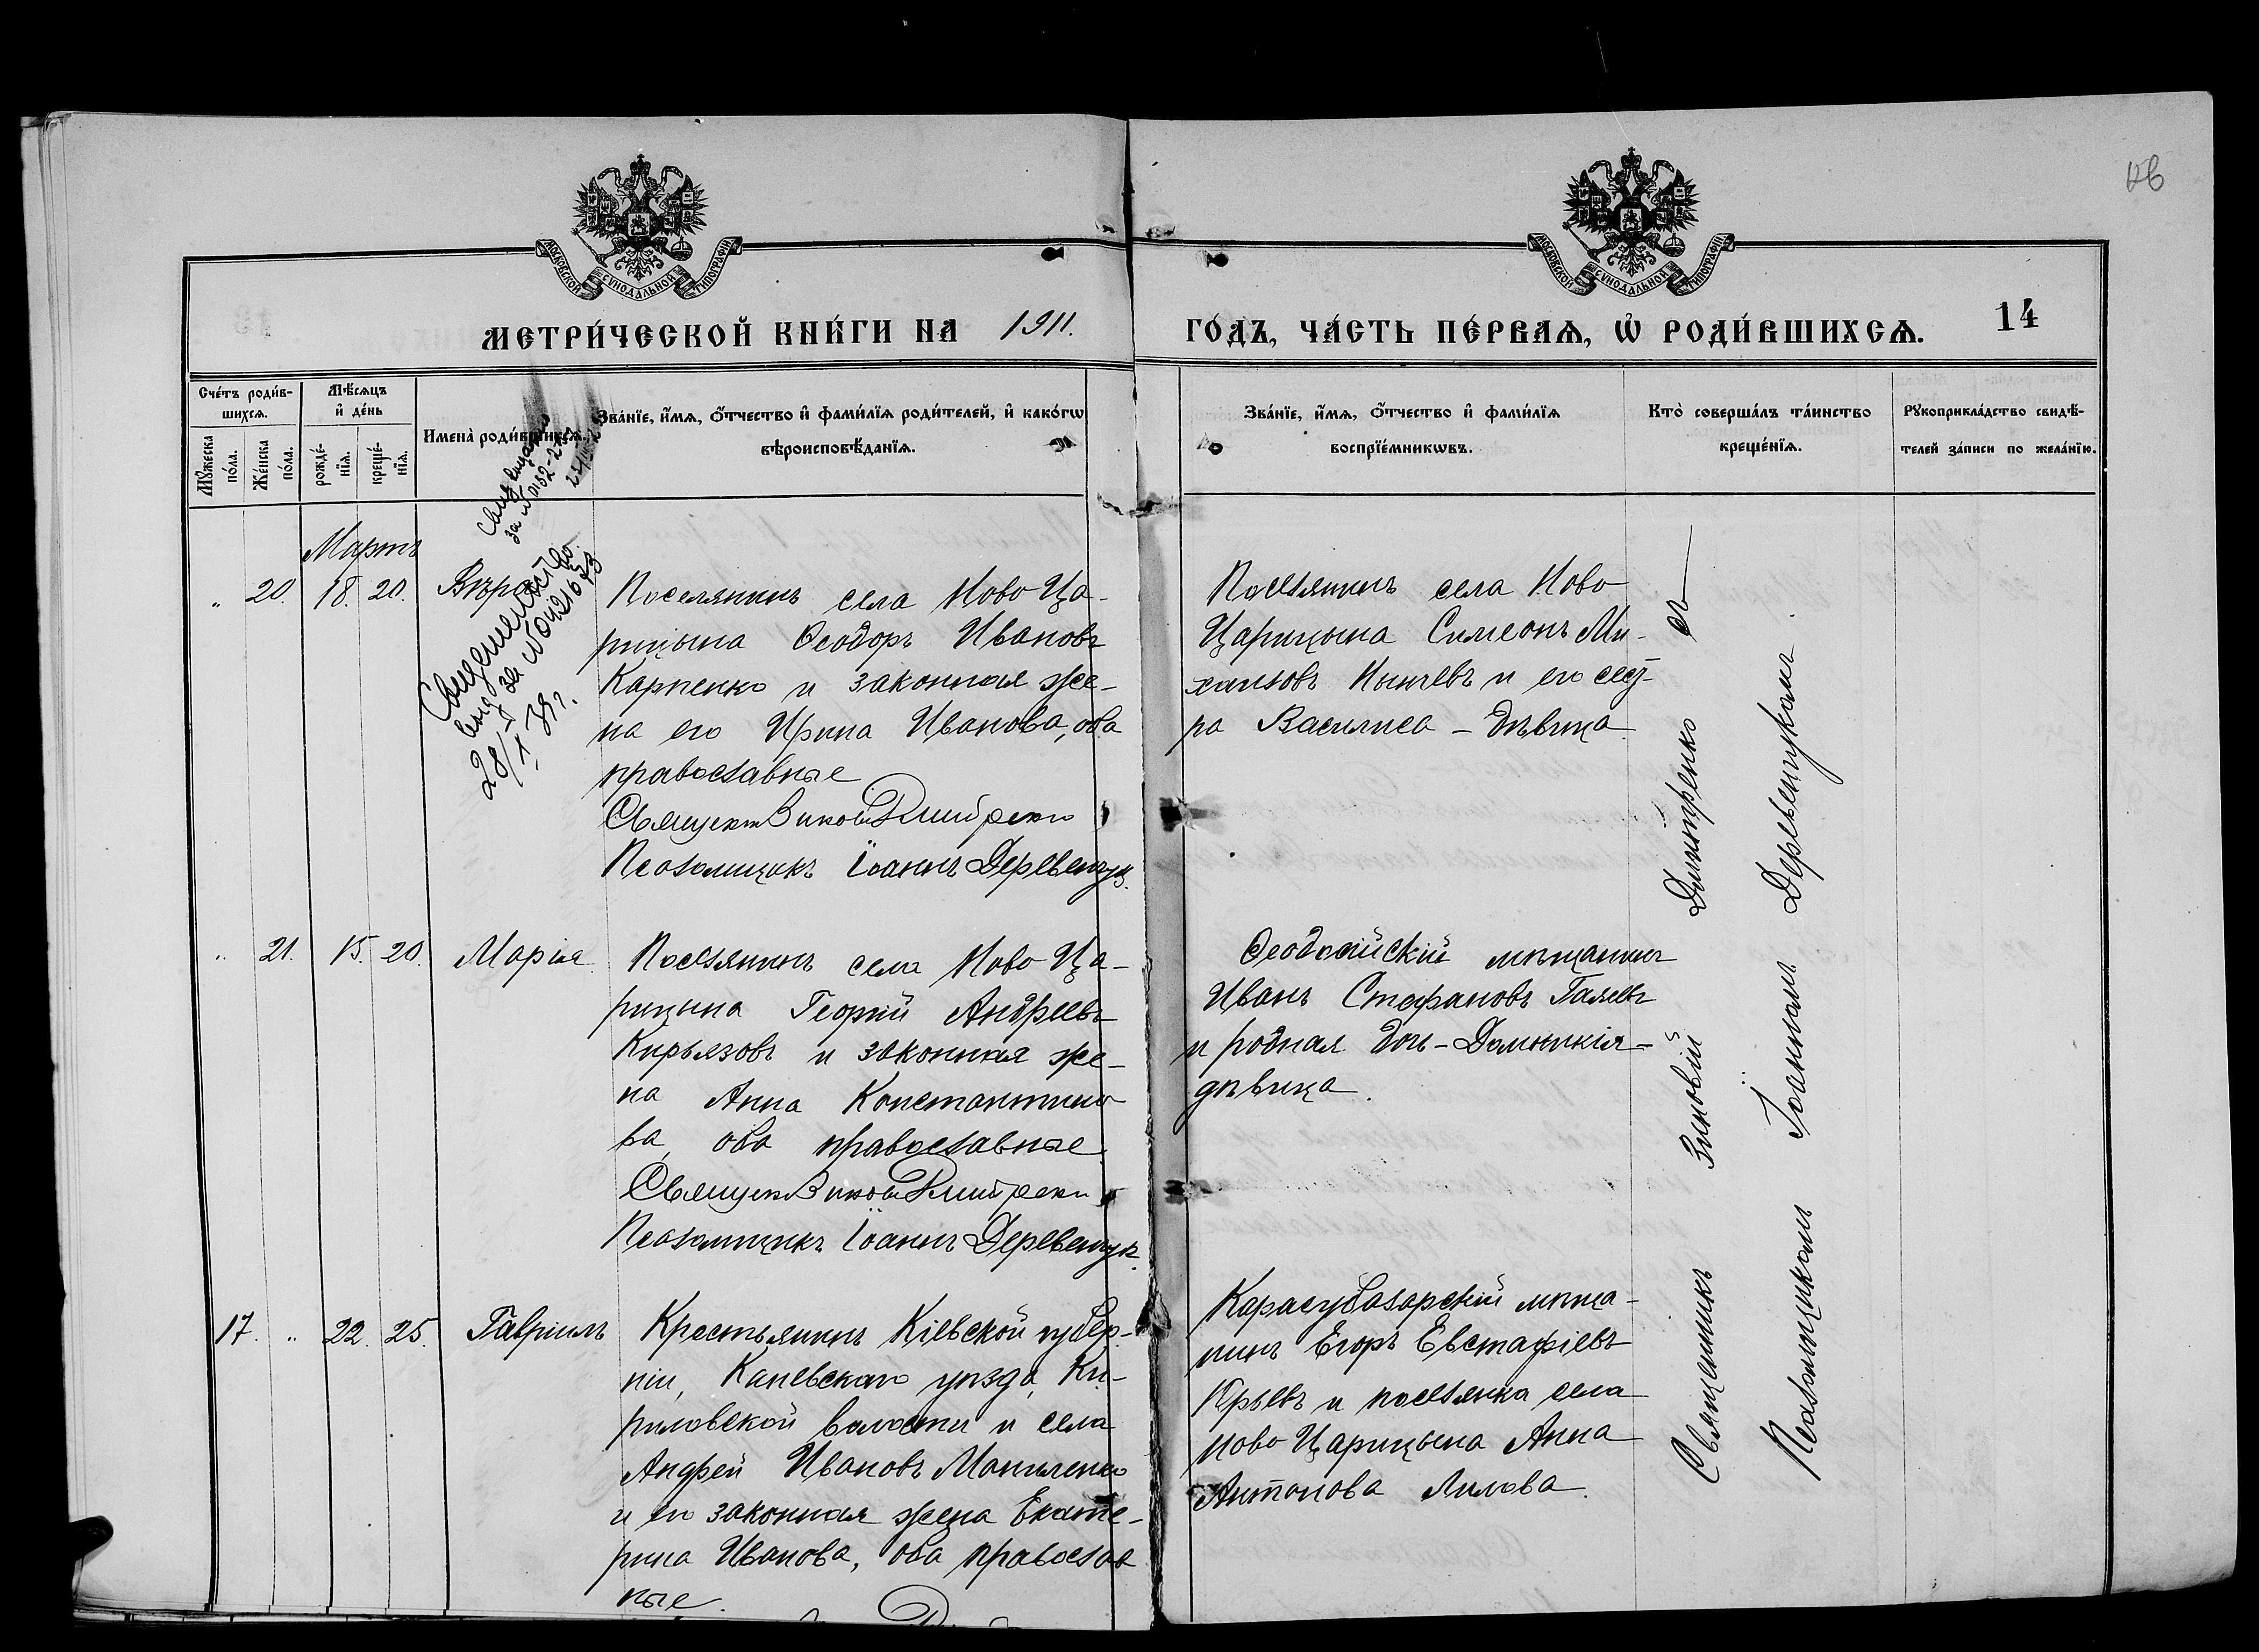 МОСКОВСКОЙ СѴНОДАЛЬНОЙ ТИПОГРАФІИ
МОСКОВСКОЙ СѴНОДАЛЬНОЙ ТИПОГРАФІИ
МЕТРИ́ЧЕСКОЙ КНИ́ГИ НА 1911.
ГО́ДЪ, ЧА́СТЬ ПЕ́РВАѦ, Ѽ РОДИ́ВШИХСѦ. 14
Сче́тъ роди́в-
шихсѧ.
Мꙋ́жеска
по́ла.
Же́нска
по́ла.
Мѣ́сѧцъ
и҆ де́нь
рожде́-
нїѧ.
креще́-
нїѧ.
Имена̀ роди́вшихсѧ.
Зва́нїе, и҆́мѧ, ѻ҆́тчество и҆ фами́лїѧ роди́телей, и҆ како́гѡ
вѣроисповѣ́данїѧ.
Зва́нїе, и҆́мѧ, ѻ҆́тчество и҆ фами́лїѧ
воспрїе́мникѡвъ.
Кто̀ соверша́лъ та́инство
креще́нїѧ.
Рꙋкоприкла́дство свидѣ́-
телей за́писи по жела́нїю.
Мартъ
" 20. 18. 20. Вѣра
Свидетельство
выд за №
28/I 39 г.
Поселянинъ села Ново Ца-
рицына Ѳеодоръ Ивановъ
Карпенко и законная же-
на его Ирина Иванова, оба
православные
Священ Зиновій Димитренко
Псаломщикъ Іоаннъ Деревенчук.
Поселянинъ села Ново
Царицына Симеонъ Ми-
хаиловъ и его сест-
ра Василиса - дѣвица
" 21. 15. 20. Марія
Поселянинъ села Ново Ца-
рицына Георгій Андреевъ
Кирьязовъ и законная же-
на Анна Константино
ва, оба православные.
Священ Зиновій Димитренко
Псаломщикъ Іоаннъ Деревенчук.
Ѳеодосійскій мѣщанинъ
Иванъ Стефановъ Галевъ
и родная дочь - Домникія -
дѣвица.
17. " 22. 25. Гавріилъ
Крестьянинъ Кіевской губер-
ніи, Каневскаго уѣзда, Ки-
риловской волости и села
Андрей Ивановъ Маниленко
и его законная жена Екате-
рина Иванова, оба православ
ные.
Карасубазарскій мѣща-
нинъ Егоръ Евстафіевъ
Юрьевъ и поселянка села
Ново Царицына Анна
Антонова Лилова.
Священникъ Зиновій Димитренко съ
Псаломщикомъ Іоанномъ Деревенчукомъ.